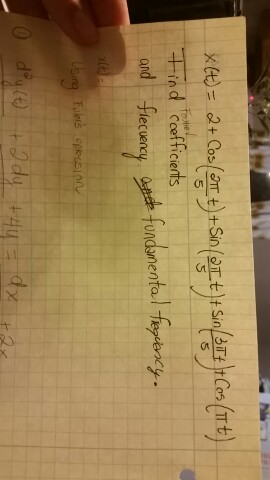 x(t) = 2 + Cos(2π/5 t) + Sin(2π/5 t) + Sin(3π/5 t) + Cos(πt)
Find Fourier coefficients
and frecuency fundamental frequency.
x(t) =
Using Euler's expression
① d²y(t) + 2dy + 4y = dx + 2x